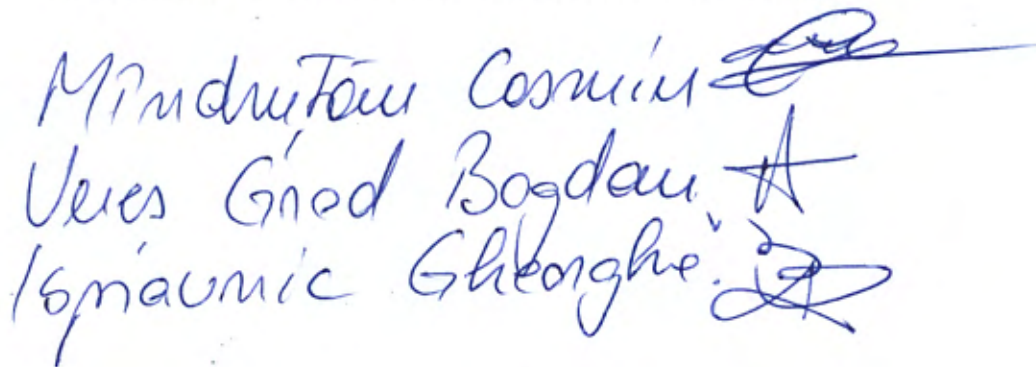 Mîndruțău Cosmin
Veres Grad Bogdan
Ispravnic Gheorghe.